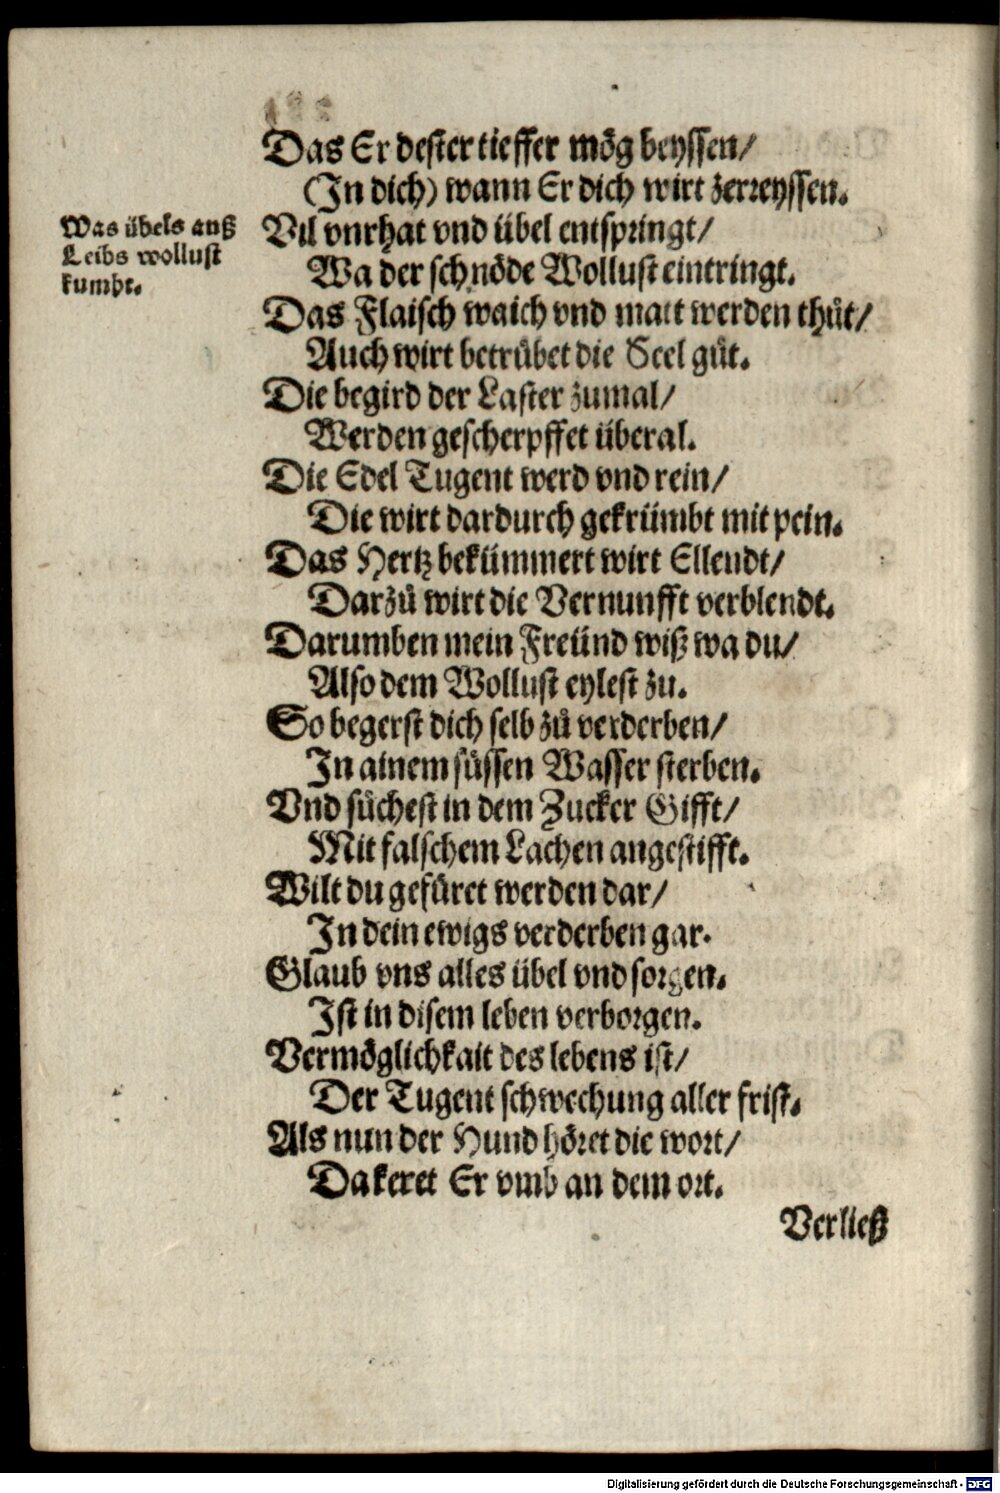 Das Er dester tieffer mög beyssen/
(In dich) wann Er dich wirt zerreyssen.
Was übels auß
Leibs wollust
kumbt.
Vil vnrhat vnd übel entspringt/
Wa der schnöde Wollust eintringt.
Das Flaisch waich vnd matt werden thůt/
Auch wirt betrübet die Seel gůt.
Die begird der Laster zumal/
Werden gescherpffet überal.
Die Edel Tugent werd vnd rein/
Die wirt dardurch gekrümbt mit pein.
Das Hertz bekümmert wirt Ellendt/
Darzů wirt die Vernunfft verblendt.
Darumben mein Freünd wiß wa du/
Also dem Wollust eylest zu.
So begerst dich selb zů verderben/
In ainem süssen Wasser sterben.
Vnd sůchest in dem Zucker Gifft/
Mit falschem Lachen angestifft.
Wilt du gefüret werden dar/
In dein ewigs verderben gar.
Glaub vns alles übel vnd sorgen.
Ist in disem leben verborgen.
Vermöglichkait des lebens ist/
Der Tugent schwechung aller frist.
Als nun der Hund höret die wort/
Da keret Er vmb an dem ort.
Verließ
Digitalisierung gefördert durch die Deutsche Forschungsgemeinschaft - DFG